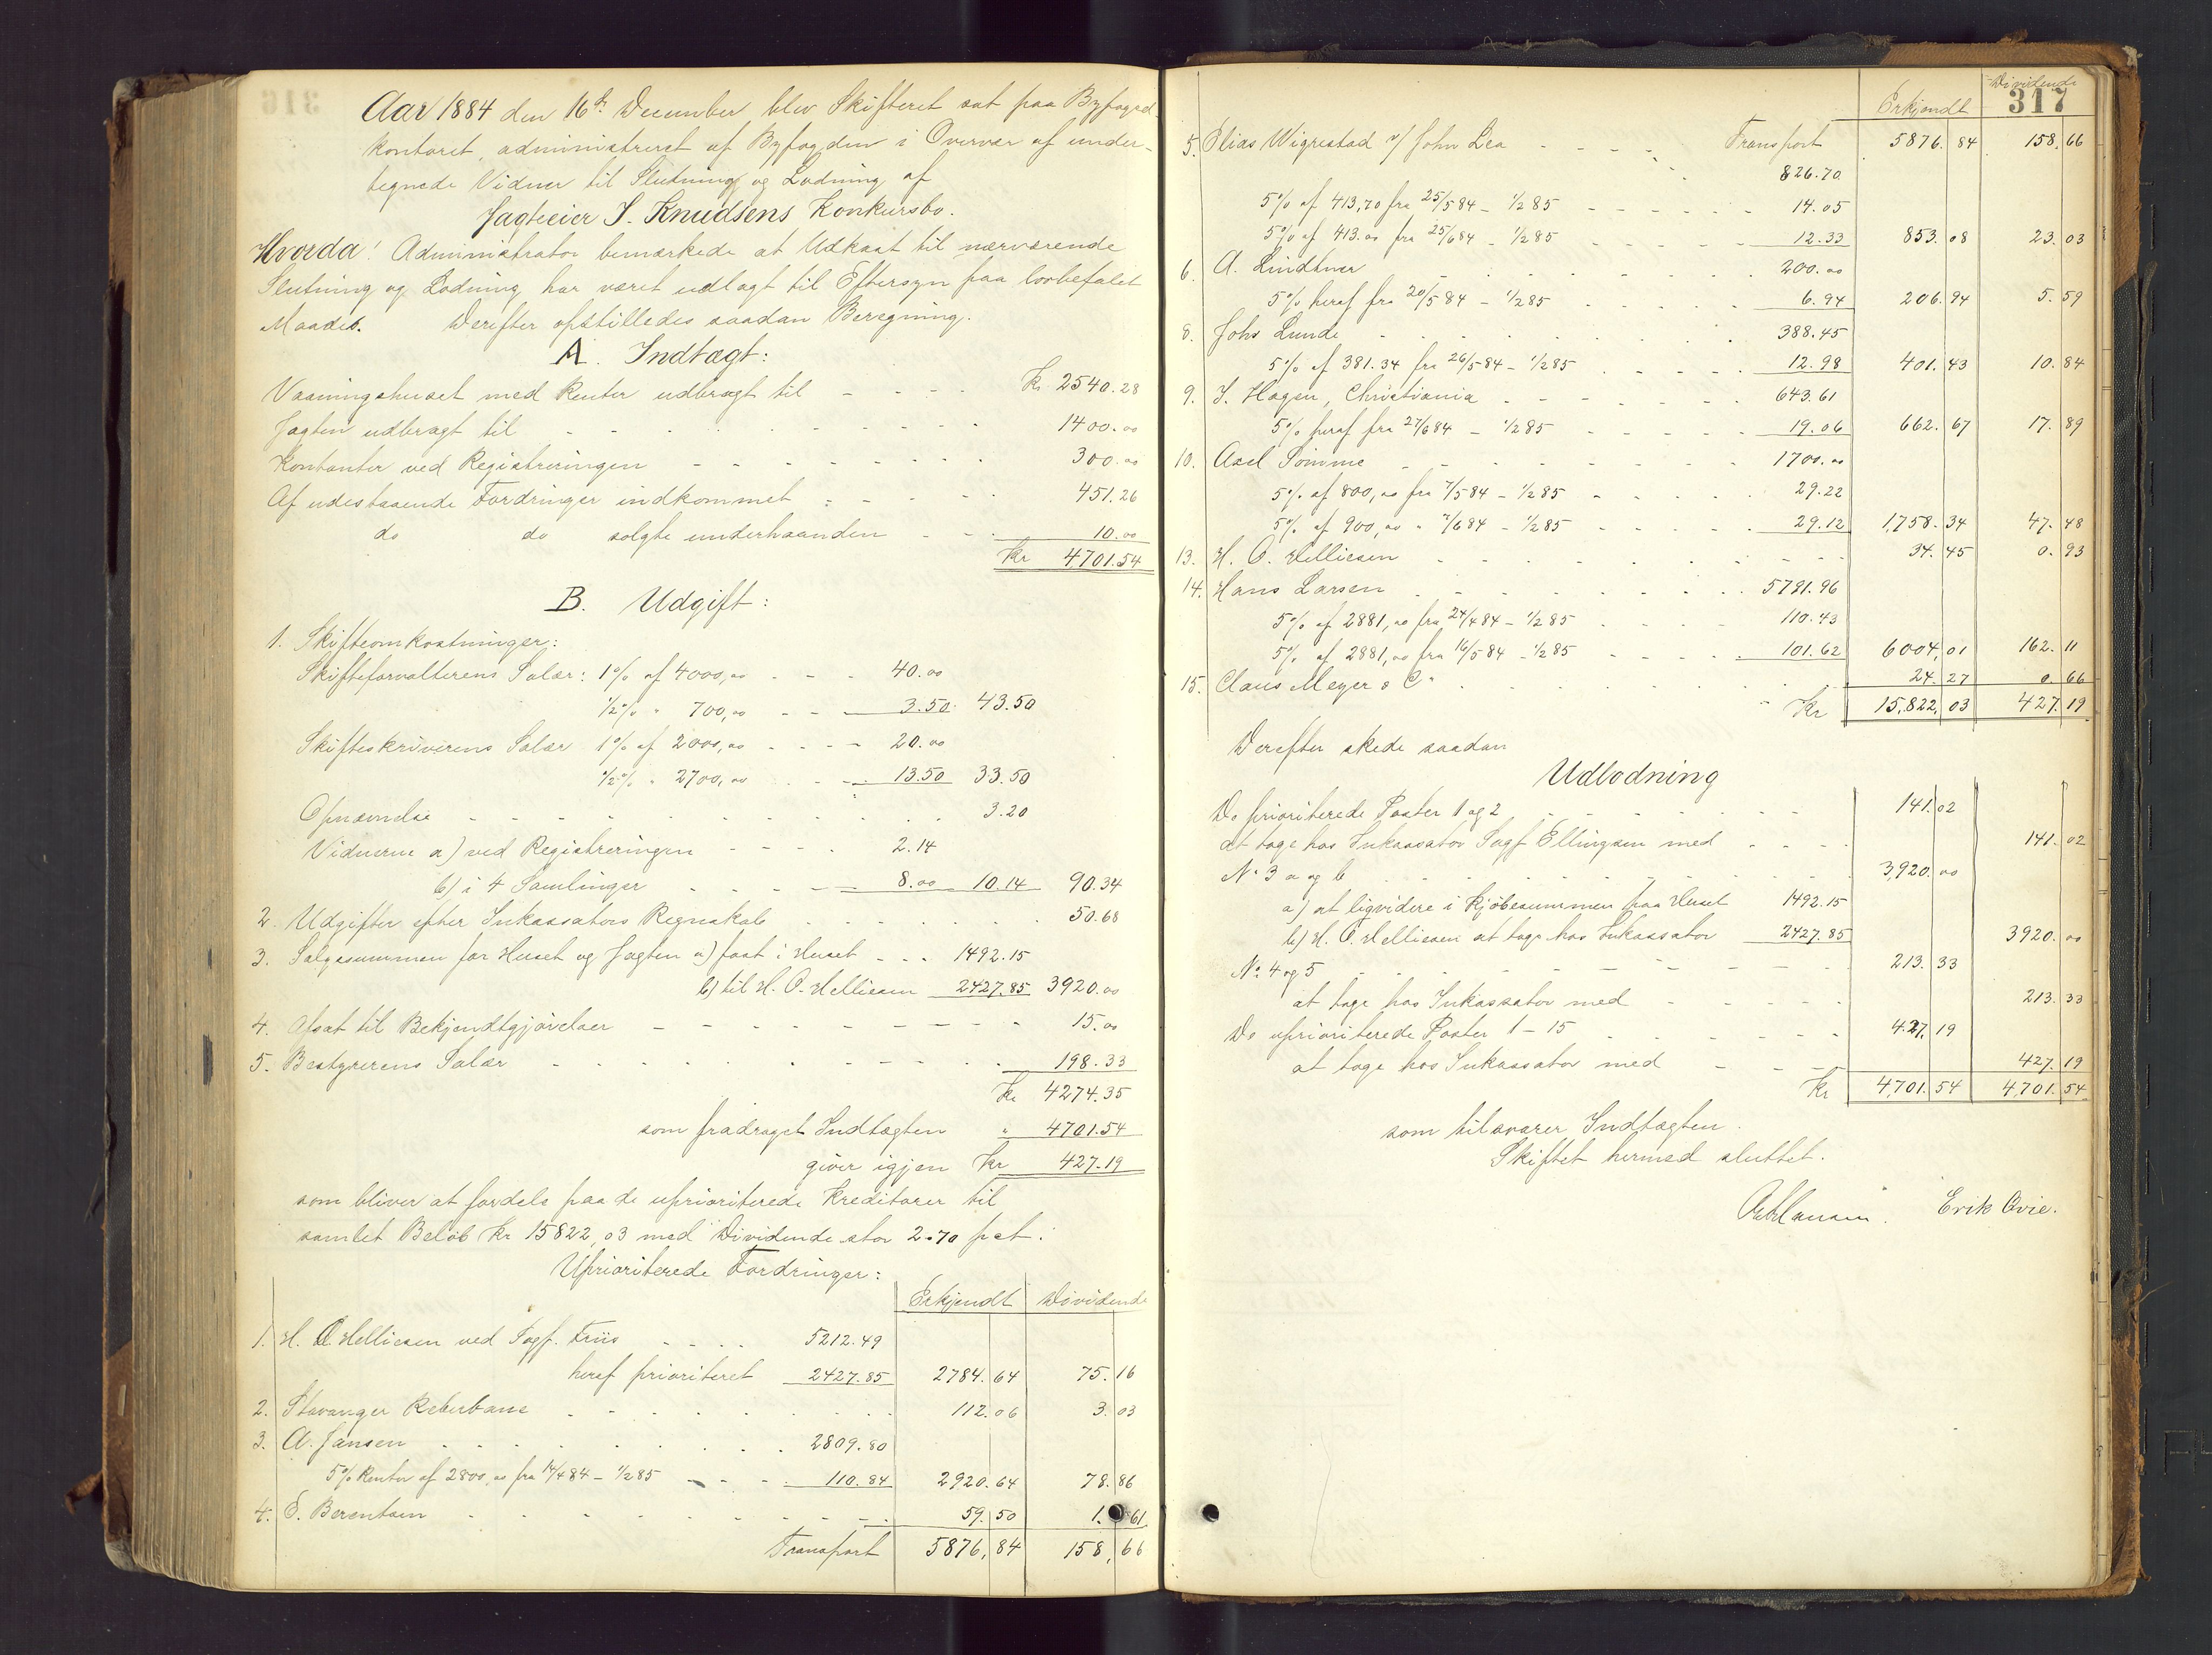 Aar 1884 den 16de December blev Skifteret sat paa Byfoged-
kontoret, administreret af Byfogden i Overvær af under-
tegnede Vidner til Slutning og Lodning af
Jagteeier I. Knudsens Konkursbo.
Hvorda! Administrator bemærkede at Udkast til nærværende
Slutning og Lodning har været udlagt til Eftersyn paa lovbefalet
Maade. Derefter opstilledes saadan Beregning.
A. Indtægt:
Vaaningshuset med Renter udbragt til Kr 2540.28
Jagten udbragt til 1400.00
Kontanter ved Registreringen 300.00
Af udestaaende Fordringer indkommet 451.26
do do solgte underhaanden 10.00
Kr 4701.54
B. Udgift:
1. Skifteomkostninger:
Skifteforvalterens Salær: 1% af 4000,00 40.00
1/2% " 700,00 3.50 43.50
Skifteskriverens Salær 1% af 2000,00 20.00
1/2% " 2700,00 13.50 33.50
Opnævnelse 3.20
Vidnerne a) ved Registreringen 2.14
b) i 4 Samlinger 8.00 10.14 90.34
2. Udgifter efter Inkassators Regnskab 50.68
3. Salgssummen for Huset og Jagten a) fast i Huset 1492.15
b) til H. O. Helliesen 2427.85 3920.00
4. Afsat til Bekjendtgjørelser 15.00
5. Bestyrerens Salær 198.33
Kr 4274.35
som fradraget Indtægten " 4701.54
giver igjen Kr 427.19
som bliver at fordele paa de uprioriterede Kreditorer til
samlet Beløb Kr 15822,03 med Dividende stor 2.70 pct.
Uprioriterede Fordringer:
Erkjendt Dividende
1. H. O. Helliesen ved Sagf. Friis 5212.49
heraf prioriteret 2427.85 2784.64 75.16
2. Stavanger Reberbane 112.06 3.03
3. A. Jansen 2809.80
5% Renter af 2800,00 fra 14/4 84 - 1/2 85 110.84 2920.64 78.86
4. E. Berentsen 59.50 1.61
Transport 5876,84 158,66
317
Erkjendt Dividende
Transport 5876.84 158.66
5. Elias Wigrestad v/ John Lea 826.70
5% af 413,70 fra 25/5 84 - 1/2 85 14.05
5% af 413.00 fra 25/6 84 - 1/2 85 12.33 853.08 23.03
6. A. Lindtner 200.00
5% heraf fra 20/5 84 - 1/2 85 6.94 206.94 5.59
8. Johs Lunde 388.45
5% af 381.34 fra 26/5 84 - 1/2 85 12.98 401.43 10.84
9. I. Hagen, Christiania 643.61
5% heraf fra 27/6 84 - 1/2 85 19.06 662.67 17.89
10. Axel Sømme 1700.00
5% af 800,00 fra 7/5 84 - 1/2 85 29.22
5% af 900,00 " 7/6 84 - 1/2 85 29.12 1,758.34 47.48
13. H. O. Helliesen 34.45 0.93
14. Hans Larsen 5791.96
5% af 2881,00 fra 24/4 84 - 1/2 85 110.43
5% af 2881,00 fra 16/5 84 - 1/2 85 101.62 6004,01 162.11
15. Claus Meyer & Co 24.27 0.66
Kr 15,822,03 427.19
Derefter skede saadan
Udlodning
De prioriterede Poster 1 og 2 141.02
at tage hos Inkassator Sagf Ellingsen med 141.02
No 3 a og b 3,920.00
a) at ligvidere i Kjøbesummen paa Huset 1492.15
b) H. O. Helliesen at tage hos Inkassator 2427.85 3920.00
No 4 og 5 213.33
at tage hos Inkassator med 213.33
De uprioriterede Poster 1 - 15 427,19
at tage hos Inkassator med 427.19
Kr 4,701.54 4,701.54
som tilsvarer Indtægten.
Skiftet hermed sluttet.
Erik Qvie.